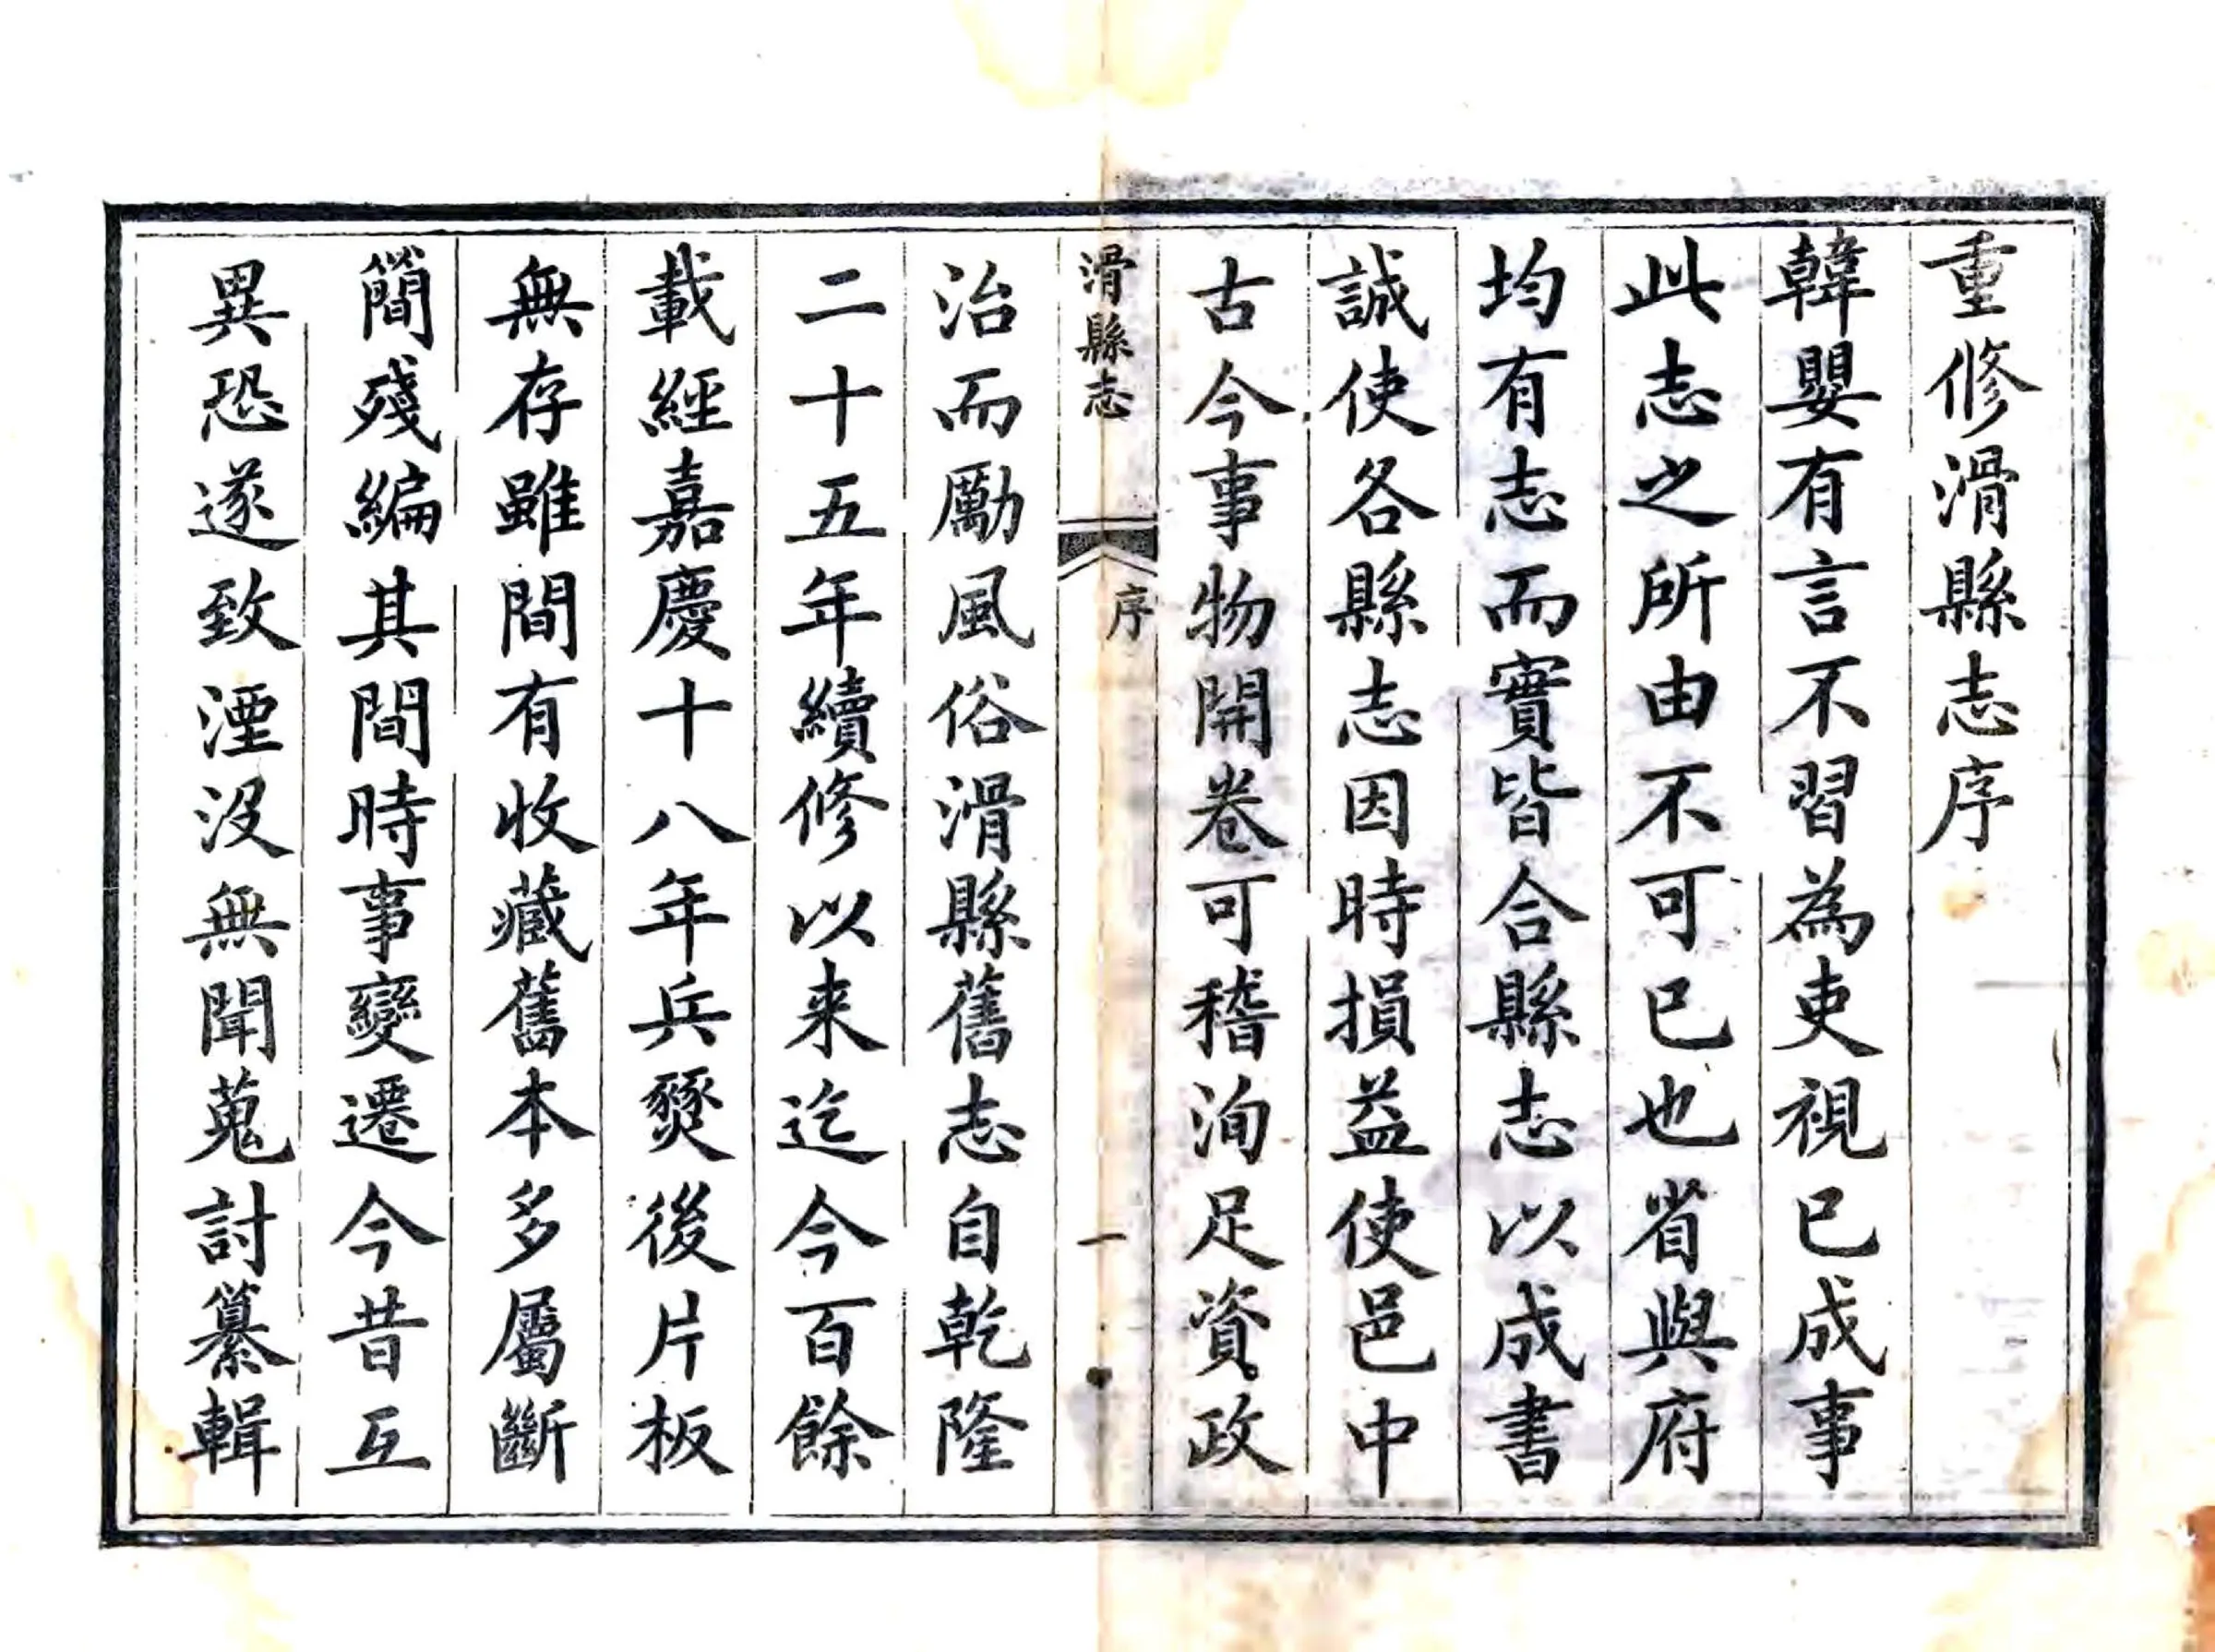 重修滑縣志序
韓嬰有言不習為吏視已成事
此志之所由不可已也省與府
均有志而實皆合縣志以成書
誠使各縣志因時損益使邑中
古今事物開卷可稽洵足資政
滑縣志 序 一
治而勵風俗滑縣舊志自乾隆
二十五年續修以来迄今百餘
載經嘉慶十八年兵燹後片板
無存雖間有收藏舊本多屬斷
簡殘編其間時事變遷今昔互
異恐遂致湮沒無聞蒐討纂輯